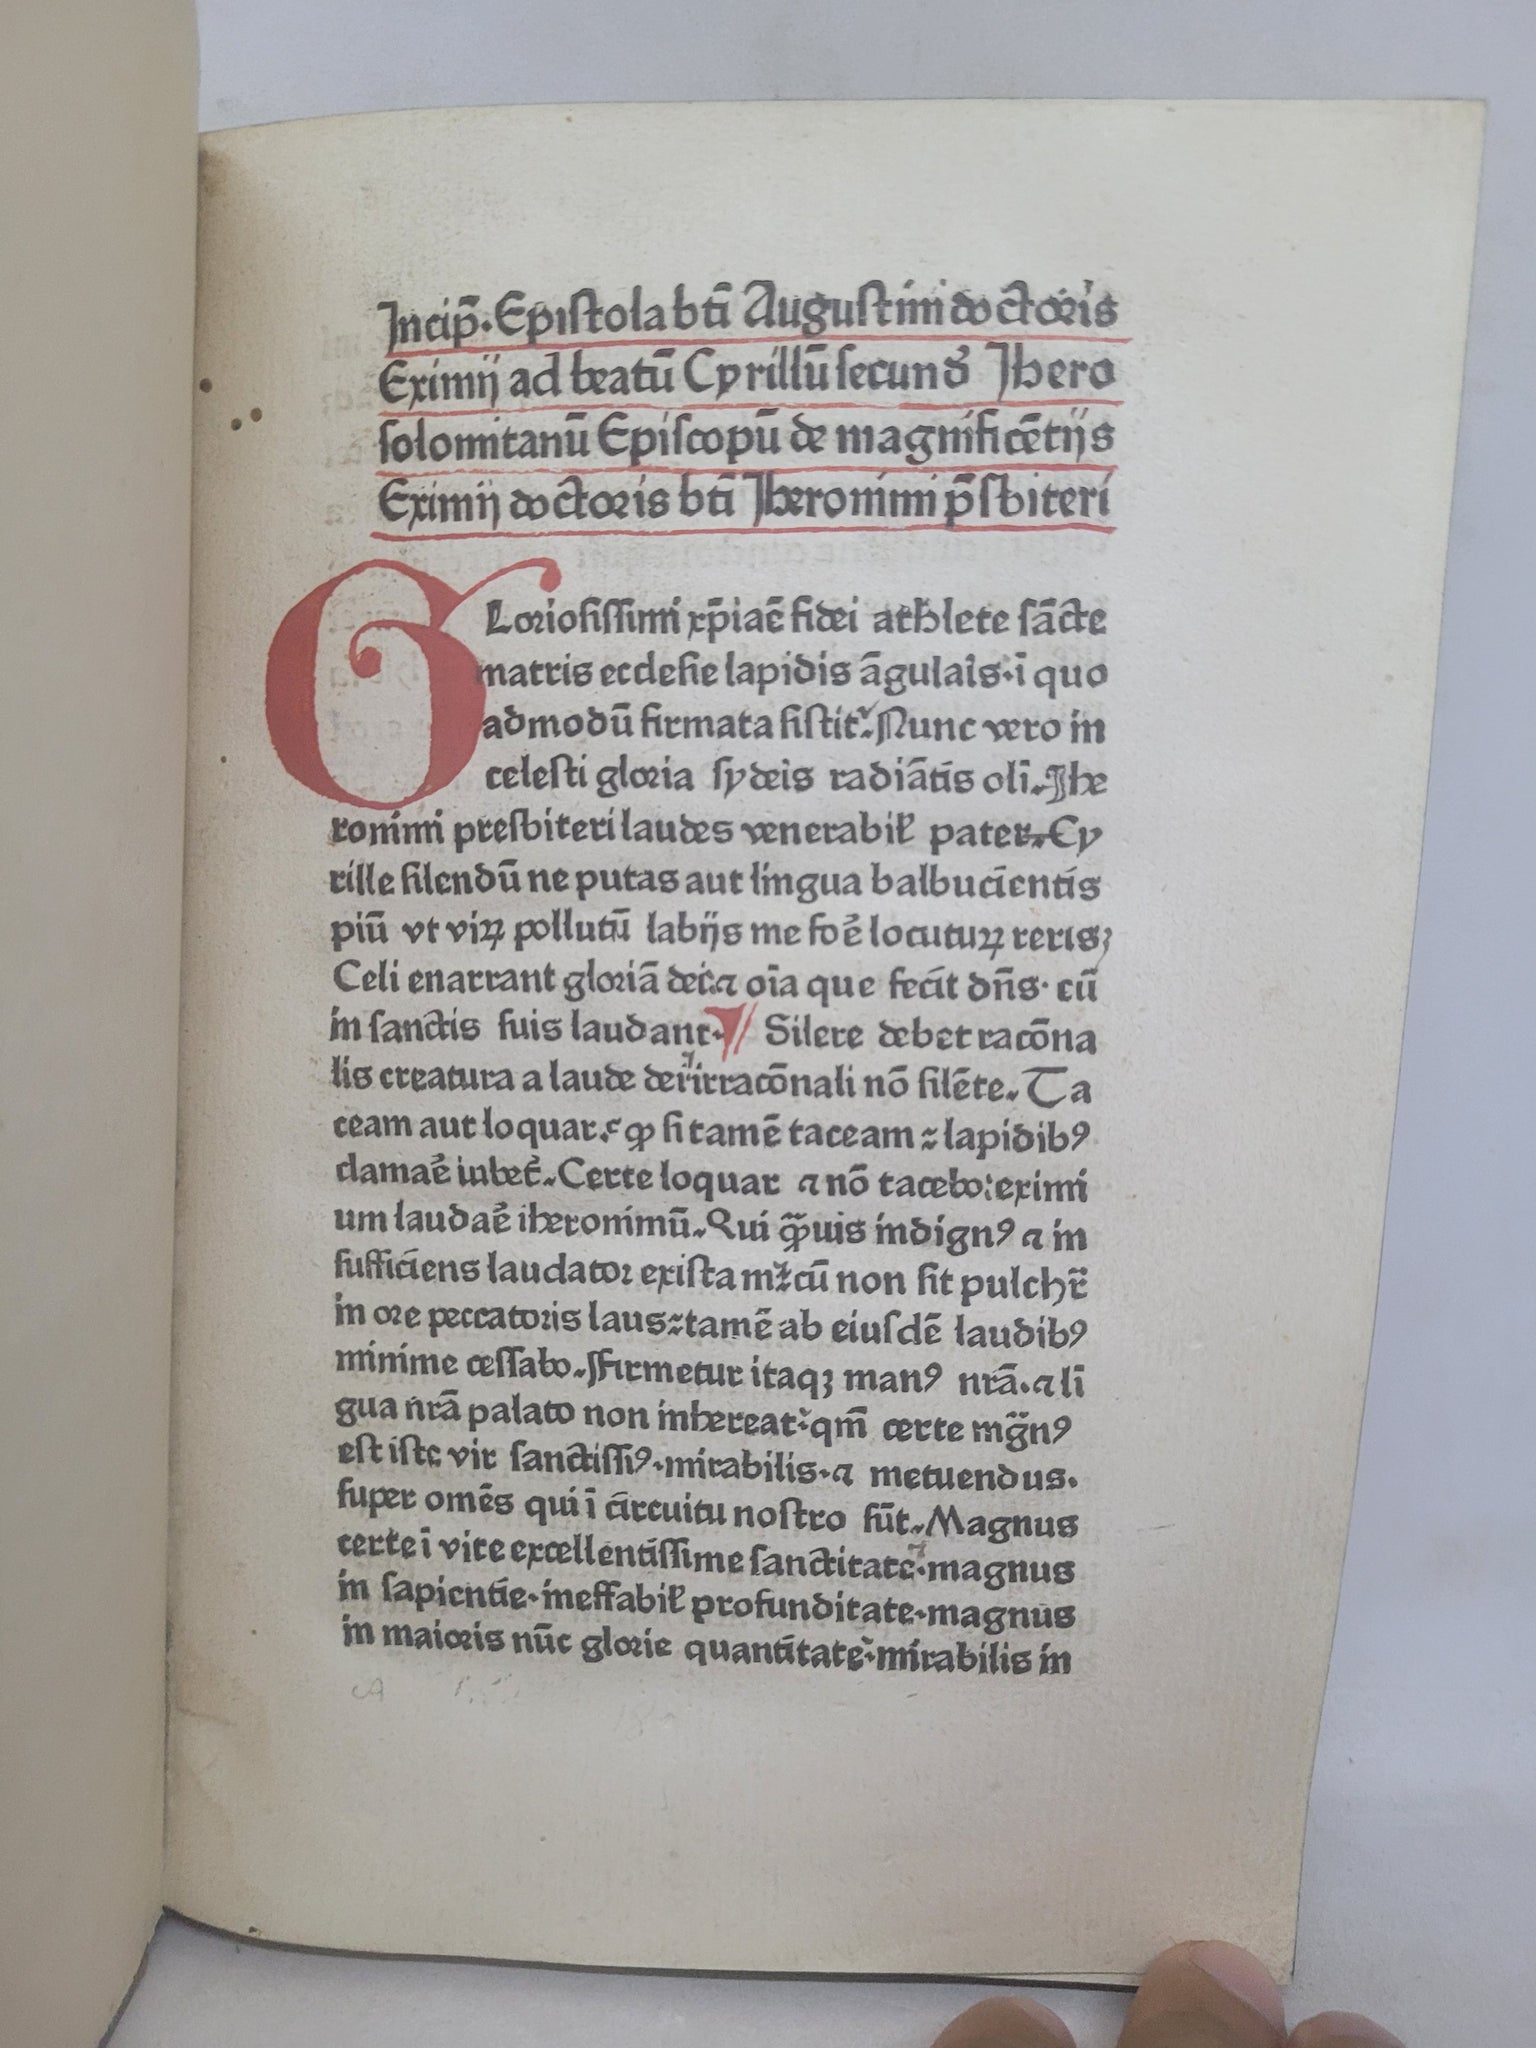 Incip̄. Epistola bti̅ Augustini doctoris
Eximij ad beatū Cyrillū secund̉ Ihero
solomitanū Episcopū de magnificētijs
Eximij doctoris bti̅ Iheronimi p̄sbiteri
Gloriosissimi xp̄iae̅ fidei athlete sācte
matris ecclesie lapidis āgulaɩ̉s·ī quo
admodū firmata sistit᷑. Nunc vero in
celesti gloria sydeis radiātis oli̅. Ihe
ronimi presbiteri laudes venerabiƚ pater. Cy
rille silendū ne putas aut lingua balbucientis
piū vt viꝝ pollutū labijs me foẻ locutuꝝ reris;
Celi enarrant gloriā dei.⁊ oīa que fecit dn̄s· cū
in sanctis suis laudant. Silere debet racōna
lis creatura a laude dei irracōnali nō silēte. Ta
ceam aut loquar. ꝙ si tamē taceam lapidibꝰ
clamaẻ iubet᷑. Certe loquar ⁊ nō tacebo: eximi
um laudaẻ iheronimū. Qui ꝙ̄uis indignꝰ ⁊ in
sufficiens laudator exista m cū non sit pulchr̄
in ore peccatoris laus tamē ab eiusdē laudibꝰ
minime cessabo. Firmetur itaqꝫ manꝰ nrā.⁊ li̅
gua nrā palato non inhereat qm̄ certe mg̅nꝰ
est iste vir sanctissiꝰ·mirabilis·⁊ metuendus.
super omēs qui ī circuitu nostro sūt. Magnus
certe ī vite excellentissime sanctitate·magnus
in sapientie·ineffabiƚ profunditate·magnus
in maioris nūc glorie quantitate·mirabilis in